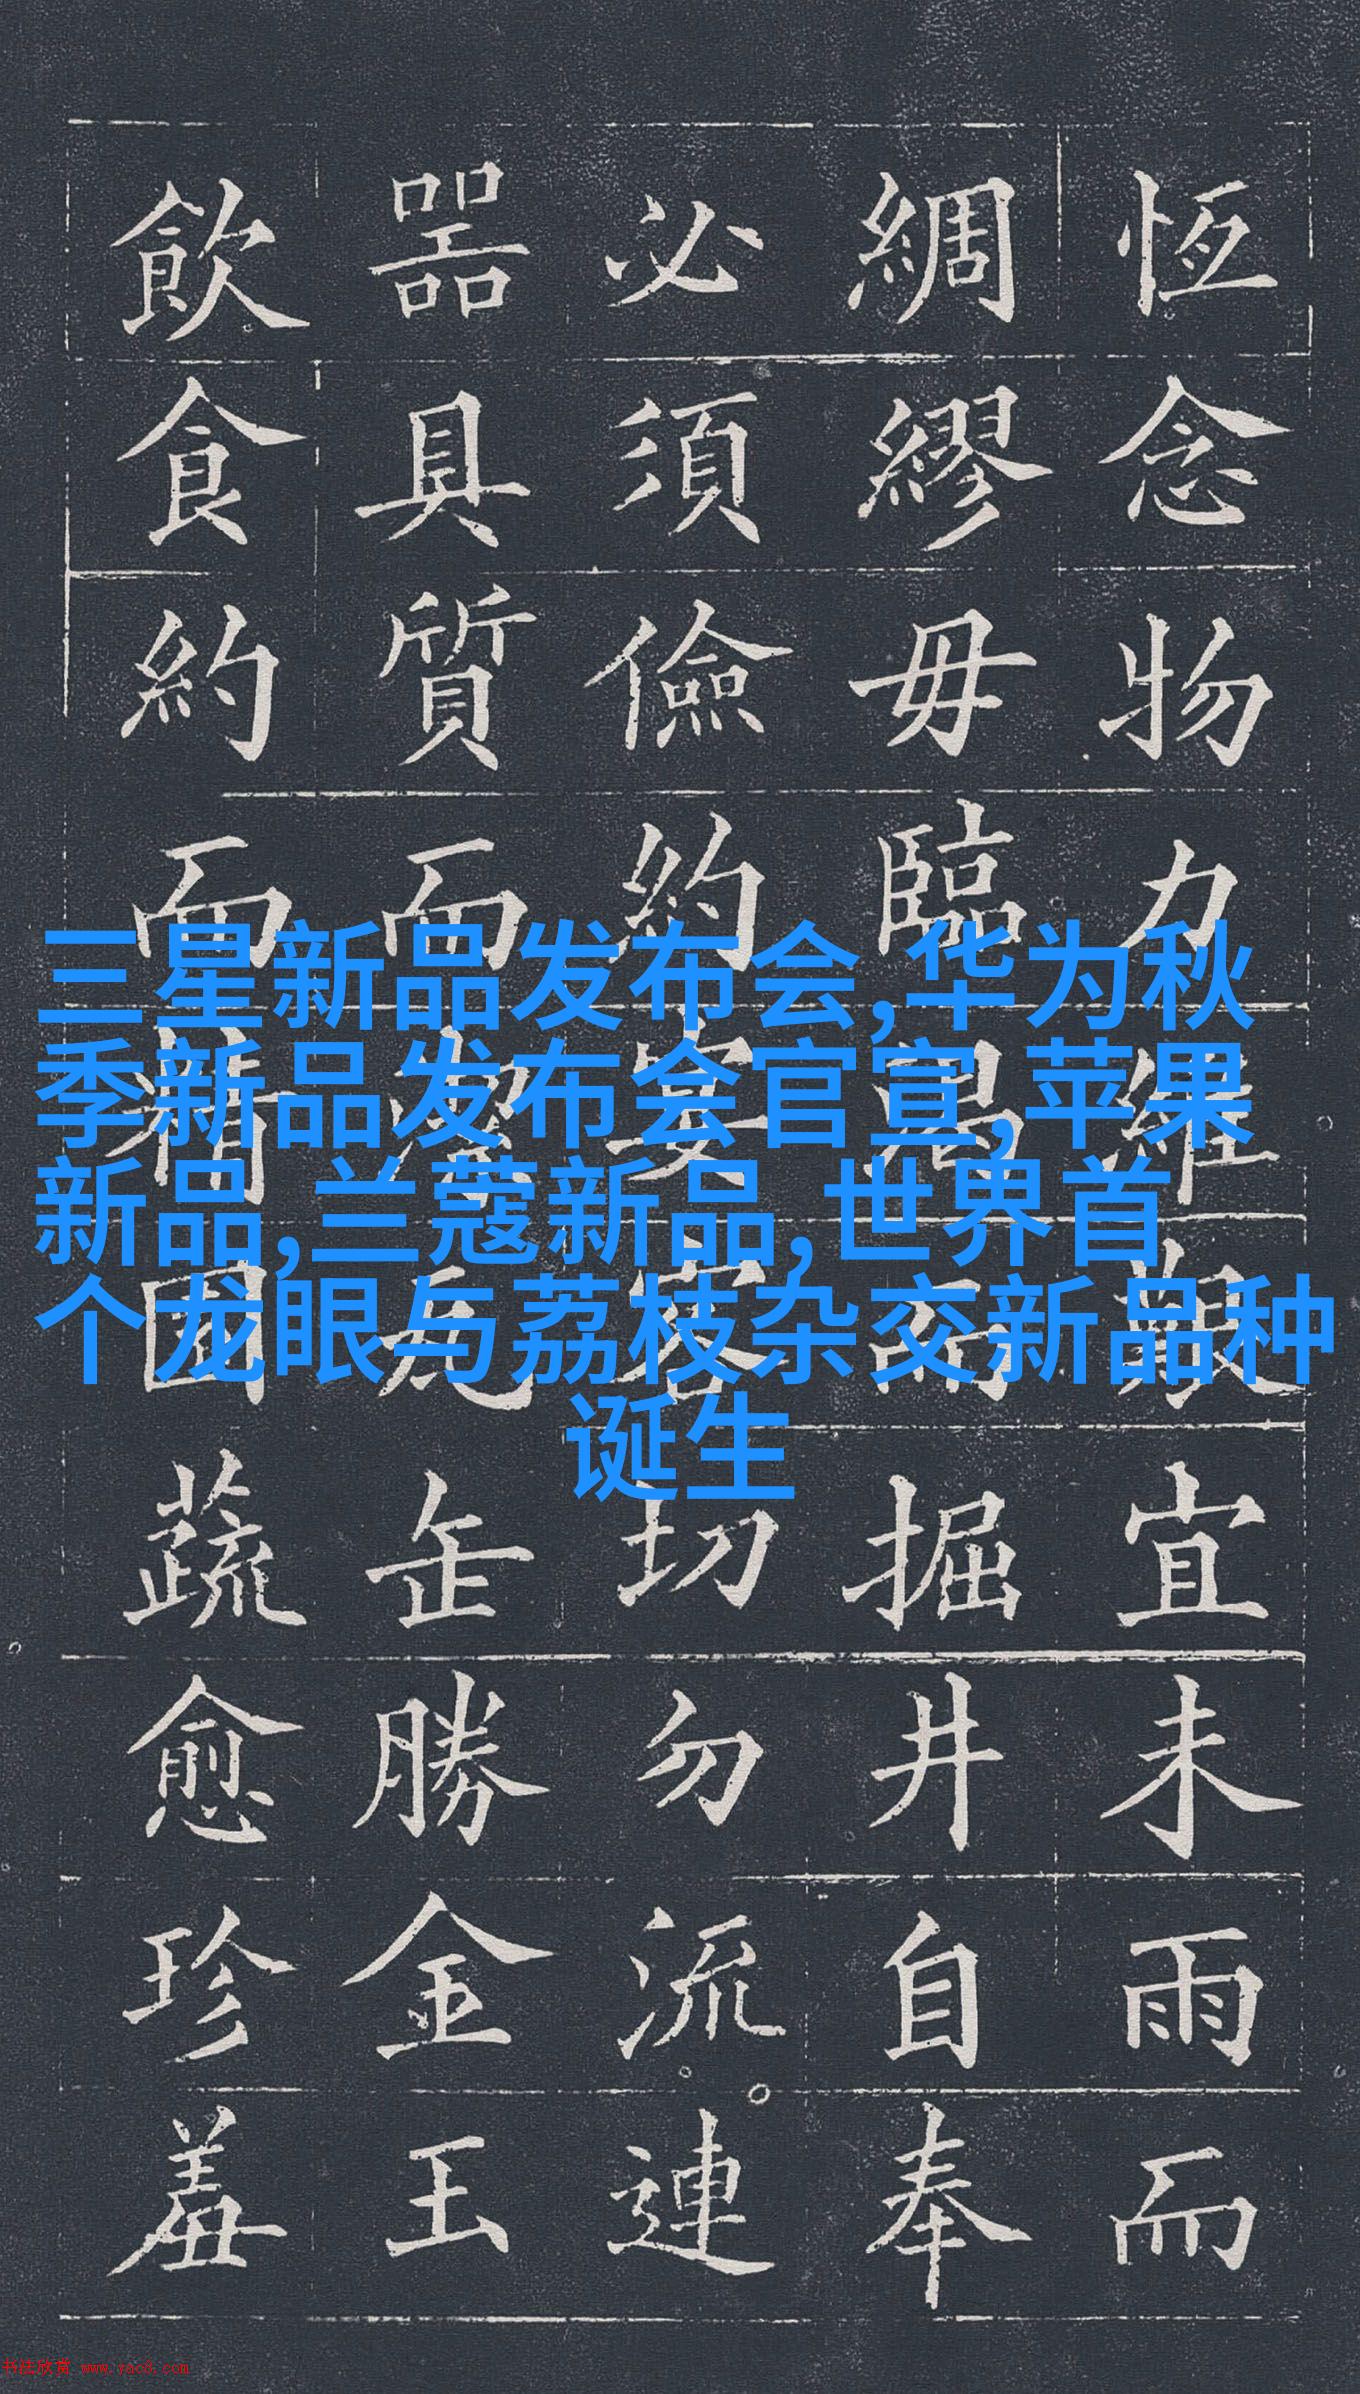 恆念物力維艱宜未雨而
綢繆毋臨渴而掘井自奉
必須儉約宴客切勿流連
噐具質而潔瓦缶勝金玉
飲食約而精園蔬愈珍羞
三星新品发布会,华为秋
季新品发布会官宣,苹果
新品,兰蔻新品,世界首
个龙眼与荔枝杂交新品种
诞生
书法欣赏 www.yac8.com